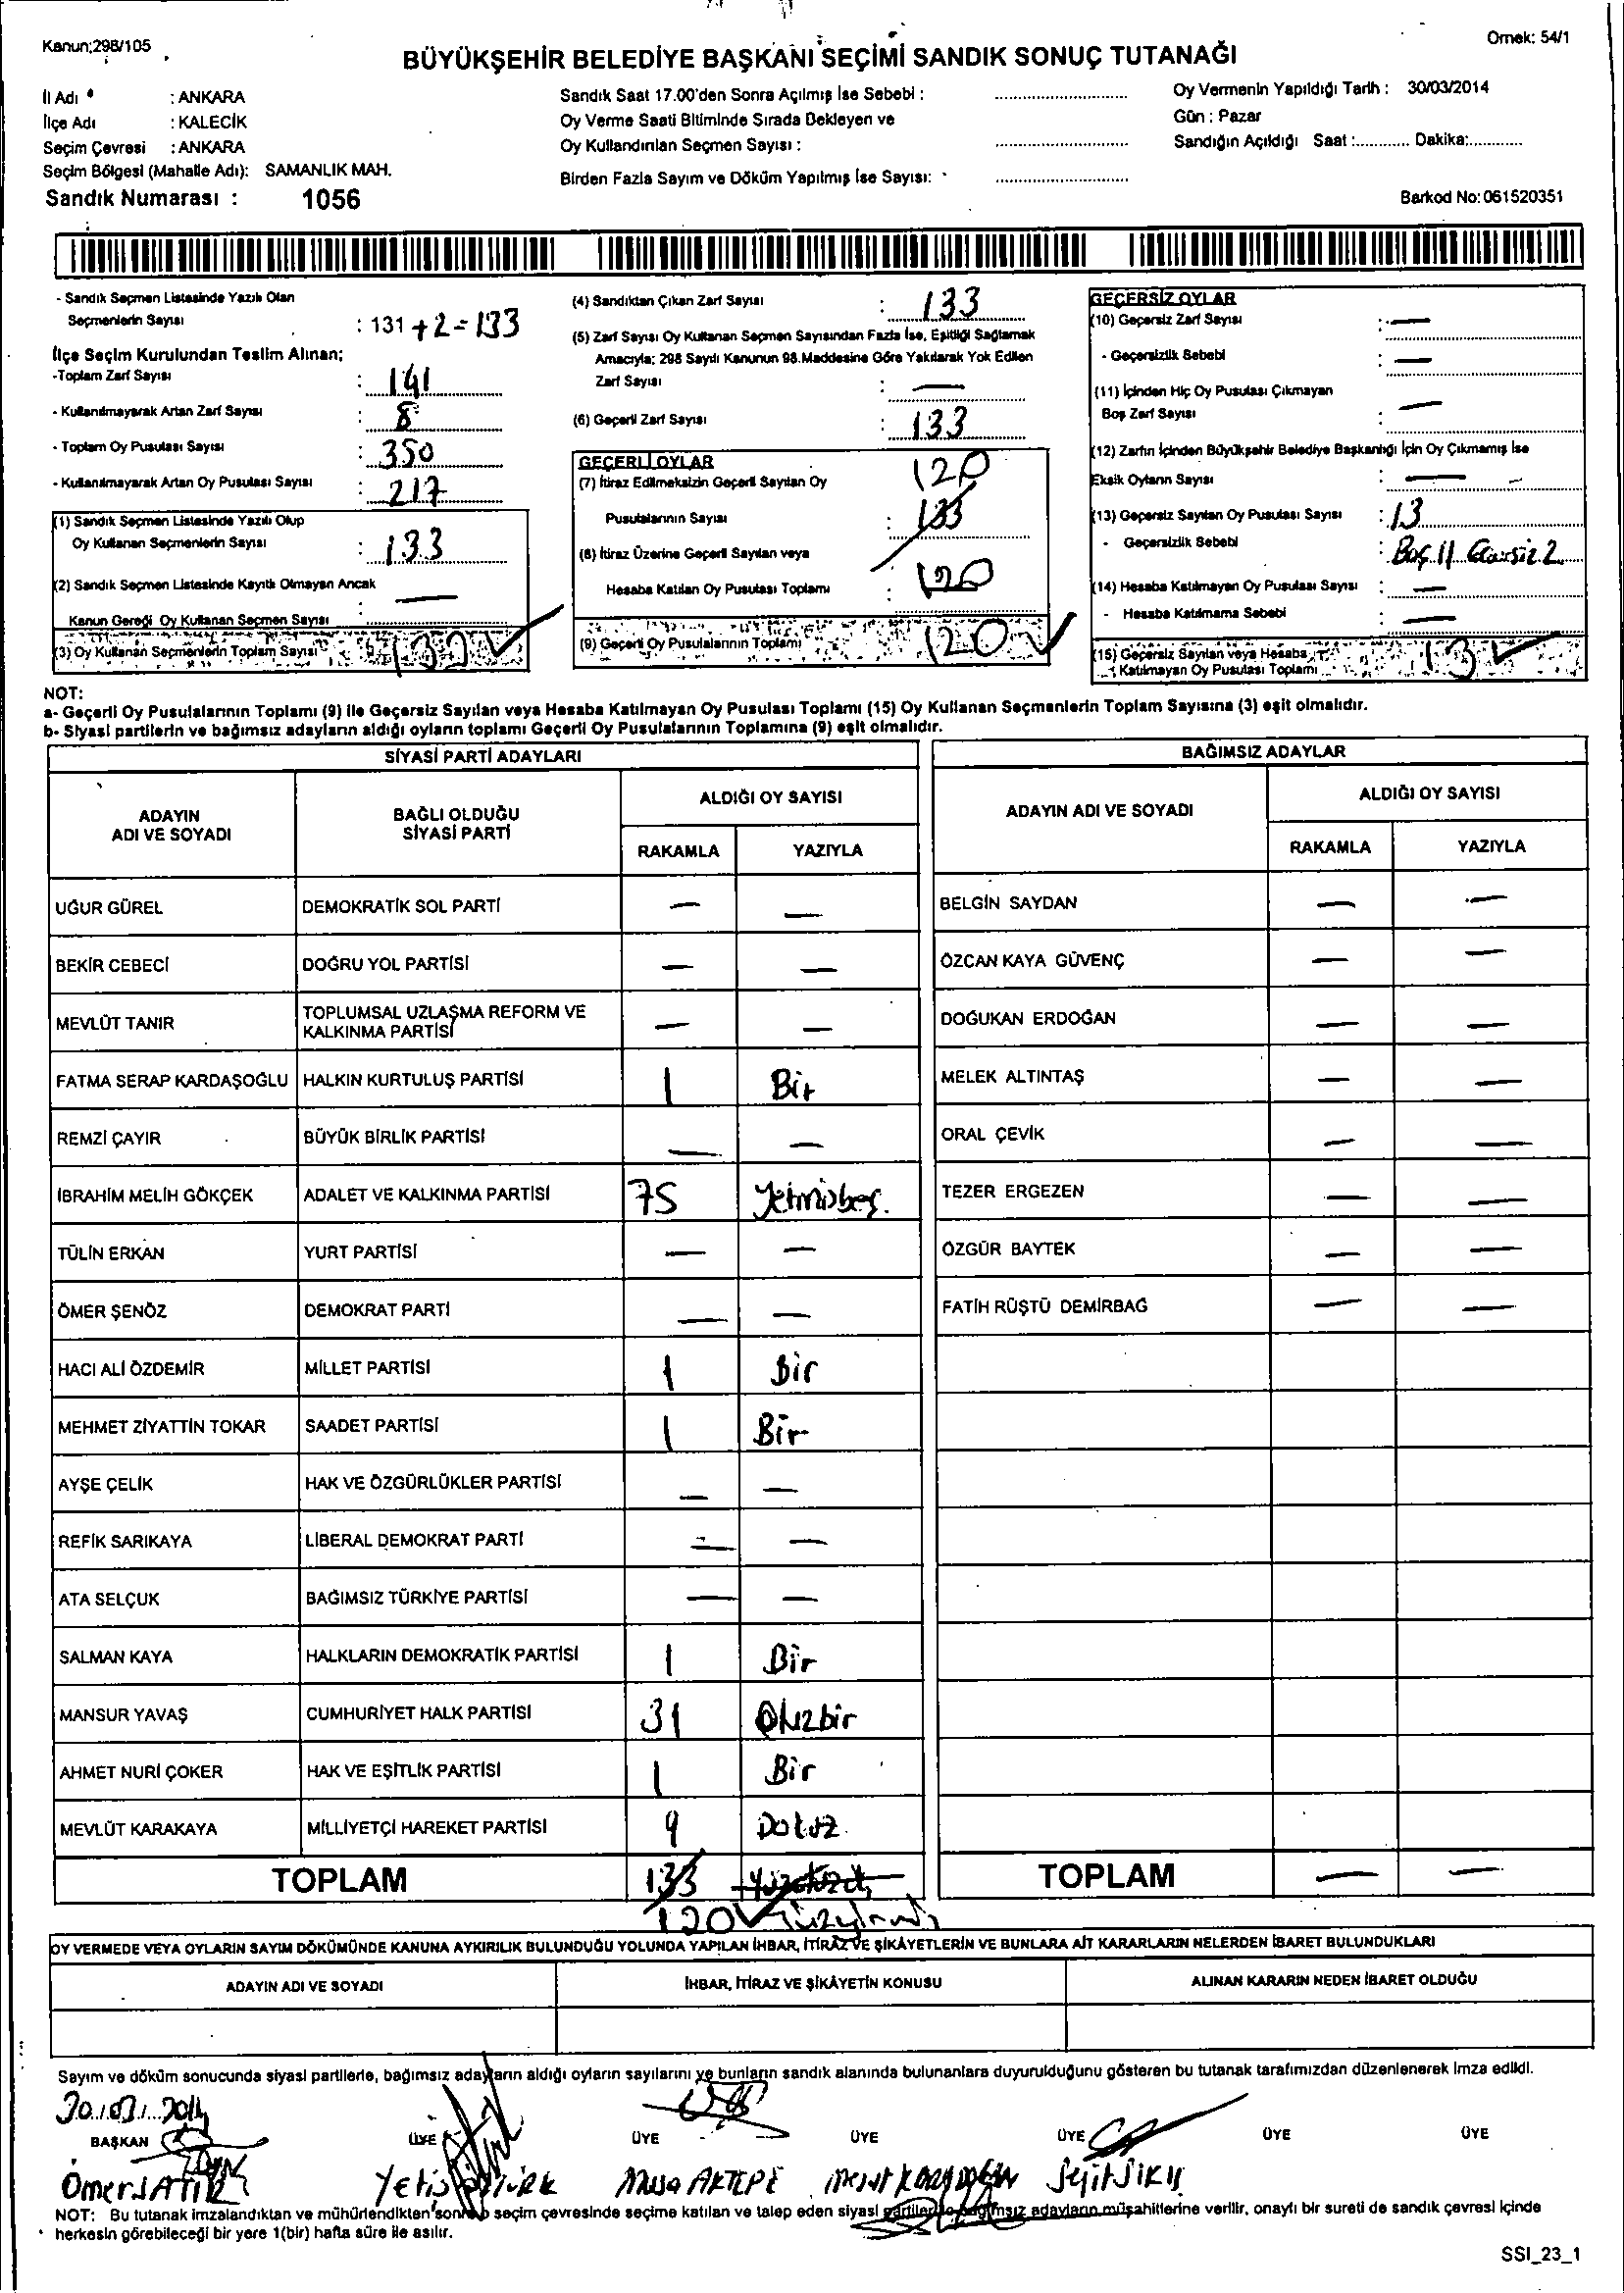 Kanun;298/105
Örnek: 54/1
BÜYÜKŞEHİR BELEDİYE BAŞKANI SEÇİMİ SANDIK SONUÇ TUTANAĞI
İl Adı : ANKARA
İlçe Adı : KALECİK
Seçim Çevresi : ANKARA
Seçim Bölgesi (Mahalle Adı): SAMANLIK MAH.
Sandık Numarası : 1056
Sandık Saat 17.00'den Sonra Açılmış İse Sebebi :
Oy Verme Saati Bitiminde Sırada Bekleyen ve
Oy Kullandırılan Seçmen Sayısı :
Birden Fazla Sayım ve Döküm Yapılmış İse Sayısı:
Oy Vermenin Yapıldığı Tarih : 30/03/2014
Gün : Pazar
Sandığın Açıldığı Saat :............ Dakika:............
Barkod No: 061520351
- Sandık Seçmen Listesinde Yazılı Olan
Seçmenlerin Sayısı : 131 + 2 = 133
İlçe Seçim Kurulundan Teslim Alınan;
-Toplam Zarf Sayısı : 141
- Kullanılmayarak Artan Zarf Sayısı : 8
- Toplam Oy Pusulası Sayısı : 350
- Kullanılmayarak Artan Oy Pusulası Sayısı : 217
(1) Sandık Seçmen Listesinde Yazılı Olup
Oy Kullanan Seçmenlerin Sayısı : 133
(2) Sandık Seçmen Listesinde Kayıtlı Olmayan Ancak
Kanun Gereği Oy Kullanan Seçmen Sayısı : —
(3) Oy Kullanan Seçmenlerin Toplam Sayısı : 133
(4) Sandıktan Çıkan Zarf Sayısı : 133
(5) Zarf Sayısı Oy Kullanan Seçmen Sayısından Fazla İse, Eşitliği Sağlamak
Amacıyla; 298 Sayılı Kanunun 98.Maddesine Göre Yakılarak Yok Edilen
Zarf Sayısı : —
(6) Geçerli Zarf Sayısı : 133
GEÇERLİ OYLAR
(7) İtiraz Edilmeksizin Geçerli Sayılan Oy 120
Pusulalarının Sayısı : 133
(8) İtiraz Üzerine Geçerli Sayılan veya
Hesaba Katılan Oy Pusulası Toplamı : 120
(9) Geçerli Oy Pusulalarının Toplamı : 120
GEÇERSİZ OYLAR
(10) Geçersiz Zarf Sayısı : —
- Geçersizlik Sebebi : —
(11) İçinden Hiç Oy Pusulası Çıkmayan
Boş Zarf Sayısı : —
(12) Zarfın İçinden Büyükşehir Belediye Başkanlığı İçin Oy Çıkmamış İse
Eksik Oyların Sayısı : —
(13) Geçersiz Sayılan Oy Pusulası Sayısı : 13
- Geçersizlik Sebebi : Boş 11 2
(14) Hesaba Katılmayan Oy Pusulası Sayısı : —
- Hesaba Katılmama Sebebi : —
(15) Geçersiz Sayılan veya Hesaba
Katılmayan Oy Pusulası Toplamı : 13
NOT:
a- Geçerli Oy Pusulalarının Toplamı (9) ile Geçersiz Sayılan veya Hesaba Katılmayan Oy Pusulası Toplamı (15) Oy Kullanan Seçmenlerin Toplam Sayısına (3) eşit olmalıdır.
b- Siyasi partilerin ve bağımsız adayların aldığı oyların toplamı Geçerli Oy Pusulalarının Toplamına (9) eşit olmalıdır.
SİYASİ PARTİ ADAYLARI
ADAYIN ADI VE SOYADI
BAĞLI OLDUĞU SİYASİ PARTİ
ALDIĞI OY SAYISI
RAKAMLA YAZIYLA
UĞUR GÜREL DEMOKRATİK SOL PARTİ — —
BEKİR CEBECİ DOĞRU YOL PARTİSİ — —
MEVLÜT TANIR TOPLUMSAL UZLAŞMA REFORM VE KALKINMA PARTİSİ — —
FATMA SERAP KARDAŞOĞLU HALKIN KURTULUŞ PARTİSİ 1 Bir
REMZİ ÇAYIR BÜYÜK BİRLİK PARTİSİ — —
İBRAHİM MELİH GÖKÇEK ADALET VE KALKINMA PARTİSİ 75 Yetmişbeş.
TÜLİN ERKAN YURT PARTİSİ — —
ÖMER ŞENÖZ DEMOKRAT PARTİ — —
HACI ALİ ÖZDEMİR MİLLET PARTİSİ 1 Bir
MEHMET ZİYATTİN TOKAR SAADET PARTİSİ 1 Bir
AYŞE ÇELİK HAK VE ÖZGÜRLÜKLER PARTİSİ — —
REFİK SARIKAYA LİBERAL DEMOKRAT PARTİ — —
ATA SELÇUK BAĞIMSIZ TÜRKİYE PARTİSİ — —
SALMAN KAYA HALKLARIN DEMOKRATİK PARTİSİ 1 Bir
MANSUR YAVAŞ CUMHURİYET HALK PARTİSİ 31 Otuzbir
AHMET NURİ ÇOKER HAK VE EŞİTLİK PARTİSİ 1 Bir
MEVLÜT KARAKAYA MİLLİYETÇİ HAREKET PARTİSİ 9 Dokuz
TOPLAM 133 Yüzotuzüç
120 Yüzyirmi
BAĞIMSIZ ADAYLAR
ADAYIN ADI VE SOYADI
ALDIĞI OY SAYISI
RAKAMLA YAZIYLA
BELGİN SAYDAN — —
ÖZCAN KAYA GÜVENÇ — —
DOĞUKAN ERDOĞAN — —
MELEK ALTINTAŞ — —
ORAL ÇEVİK — —
TEZER ERGEZEN — —
ÖZGÜR BAYTEK — —
FATİH RÜŞTÜ DEMİRBAĞ — —
TOPLAM — —
OY VERMEDE VEYA OYLARIN SAYIM DÖKÜMÜNDE KANUNA AYKIRILIK BULUNDUĞU YOLUNDA YAPILAN İHBAR, İTİRAZ VE ŞİKÂYETLERİN VE BUNLARA AİT KARARLARIN NELERDEN İBARET BULUNDUKLARI
ADAYIN ADI VE SOYADI İHBAR, İTİRAZ VE ŞİKÂYETİN KONUSU ALINAN KARARIN NEDEN İBARET OLDUĞU
Sayım ve döküm sonucunda siyasi partilerle, bağımsız adayların aldığı oyların sayılarını ve bunların sandık alanında bulunanlara duyurulduğunu gösteren bu tutanak tarafımızdan düzenlenerek imza edildi.
30/03/2014
BAŞKAN ÜYE ÜYE ÜYE ÜYE ÜYE ÜYE
Ömer Musa AKTEPE Seyit
NOT: Bu tutanak imzalandıktan ve mühürlendikten sonra o seçim çevresinde seçime katılan ve talep eden siyasi partiler ile bağımsız adayların müşahitlerine verilir, onaylı bir sureti de sandık çevresi içinde
herkesin görebileceği bir yere 1(bir) hafta süre ile asılır.
SSI_23_1